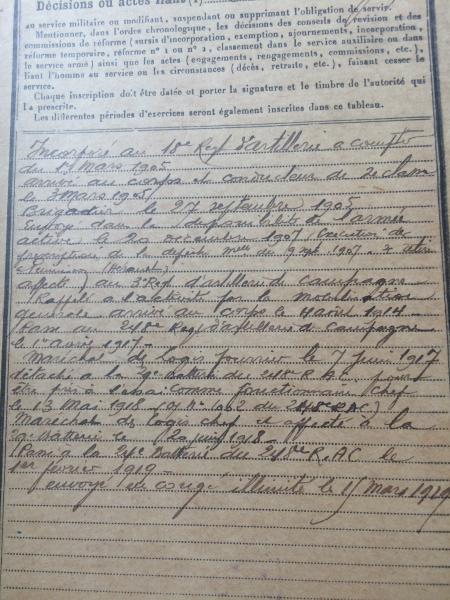 Décisions ou actes
au service militaire ou modifiant, suspendant ou supprimant l'obligation de servir.
Mentionner, dans l'ordre chronologique, les décisions des conseils de revision et des
commissions de réforme (sursis d'incorporation, exemption, ajournements, incorporation,
réforme temporaire, réforme n° 1 ou n° 2, classement dans le service auxiliaire ou dans
le service armé) ainsi que les actes (engagements, rengagements, commissions, etc.),
liant l'homme au service ou les circonstances (décès, retraite, etc.), faisant cesser le
service.
Chaque inscription doit être datée et porter la signature et le timbre de l'autorité qui
l'a prescrite.
Les différentes périodes d'exercices seront également inscrites dans ce tableau.
Incorporé au 18e Regt d'artillerie a compter
du Mars 1905
arrivé au corps et conducteur de 2e classe
le 3 Mars 1905
Brigadier le 27 septembre 1905
Envoyé dans la disponibilité de l'armée
active le 20 1907 (Exécution des
prescriptions de la dépêche melle du 9 1907
affecté au 3 Regt d'artillerie de campagne
Rappelé a l'activité par la mobilisation
générale arrivé au corps le 4 aout 1914
Passé au 248e Regt d'artillerie de campagne
le 1er avril 1917
Maréchal des logis fourrier le 7 Juin 1917
détaché a la Batterie du 248e R.A.C. pour
être pris à l'essai comme fonctionnaire chef
le 13 Mai 1918 du 248 R.A.C.)
Maréchal des logis chef et affecté à la
29e Batterie le juin 1918
Passé à la Batterie du 248e R.A.C. le
1er février 1919
envoyé en congé illimité le 15 mars 1919